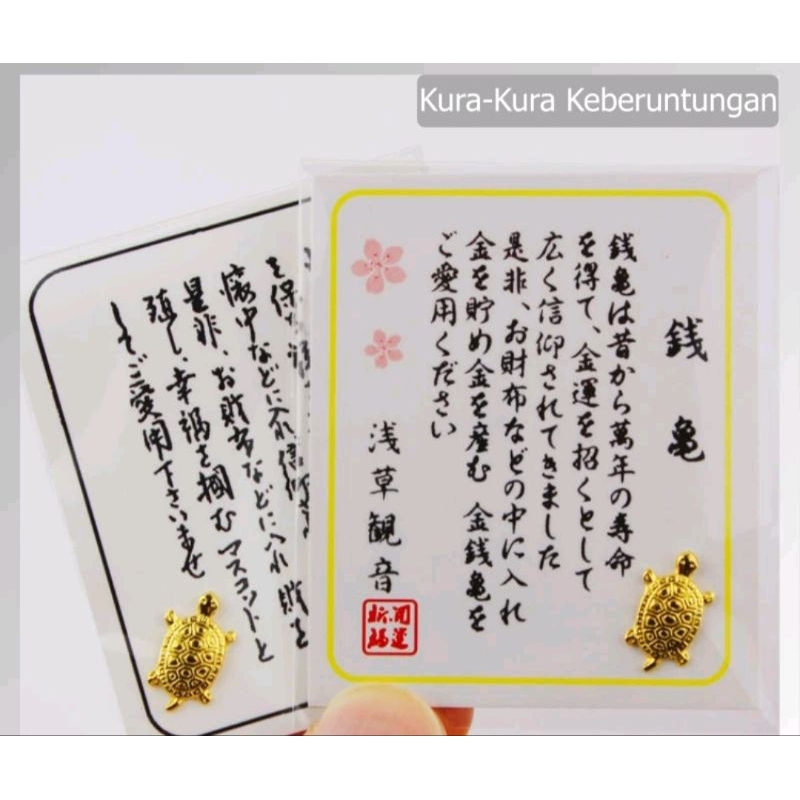 Kura-Kura Keberuntungan
銭亀
銭亀は昔から萬年の寿命
を得て、金運を招くとして
広く信仰されてきました
是非、お財布などの中に入れ
金を貯め金を産む 金銭亀を
ご愛用ください
浅草観音
開運
祈福
懐中などに入れ
是非、お財布などに入れ
殖し、幸福を掴むマスコットと
してご愛用下さいませ